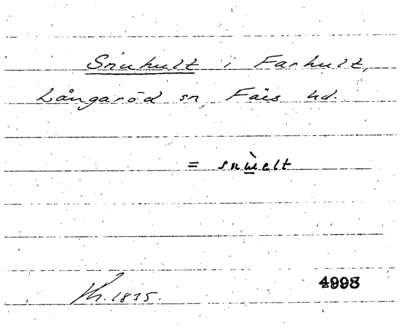 Snuhult i Farhult,
Långaröd sn, Färs hd.
= snẁelt
Kr. 1835.
4998